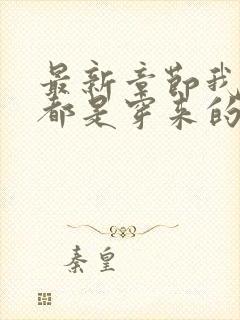 最新章节我
都是穿来的
秦皇